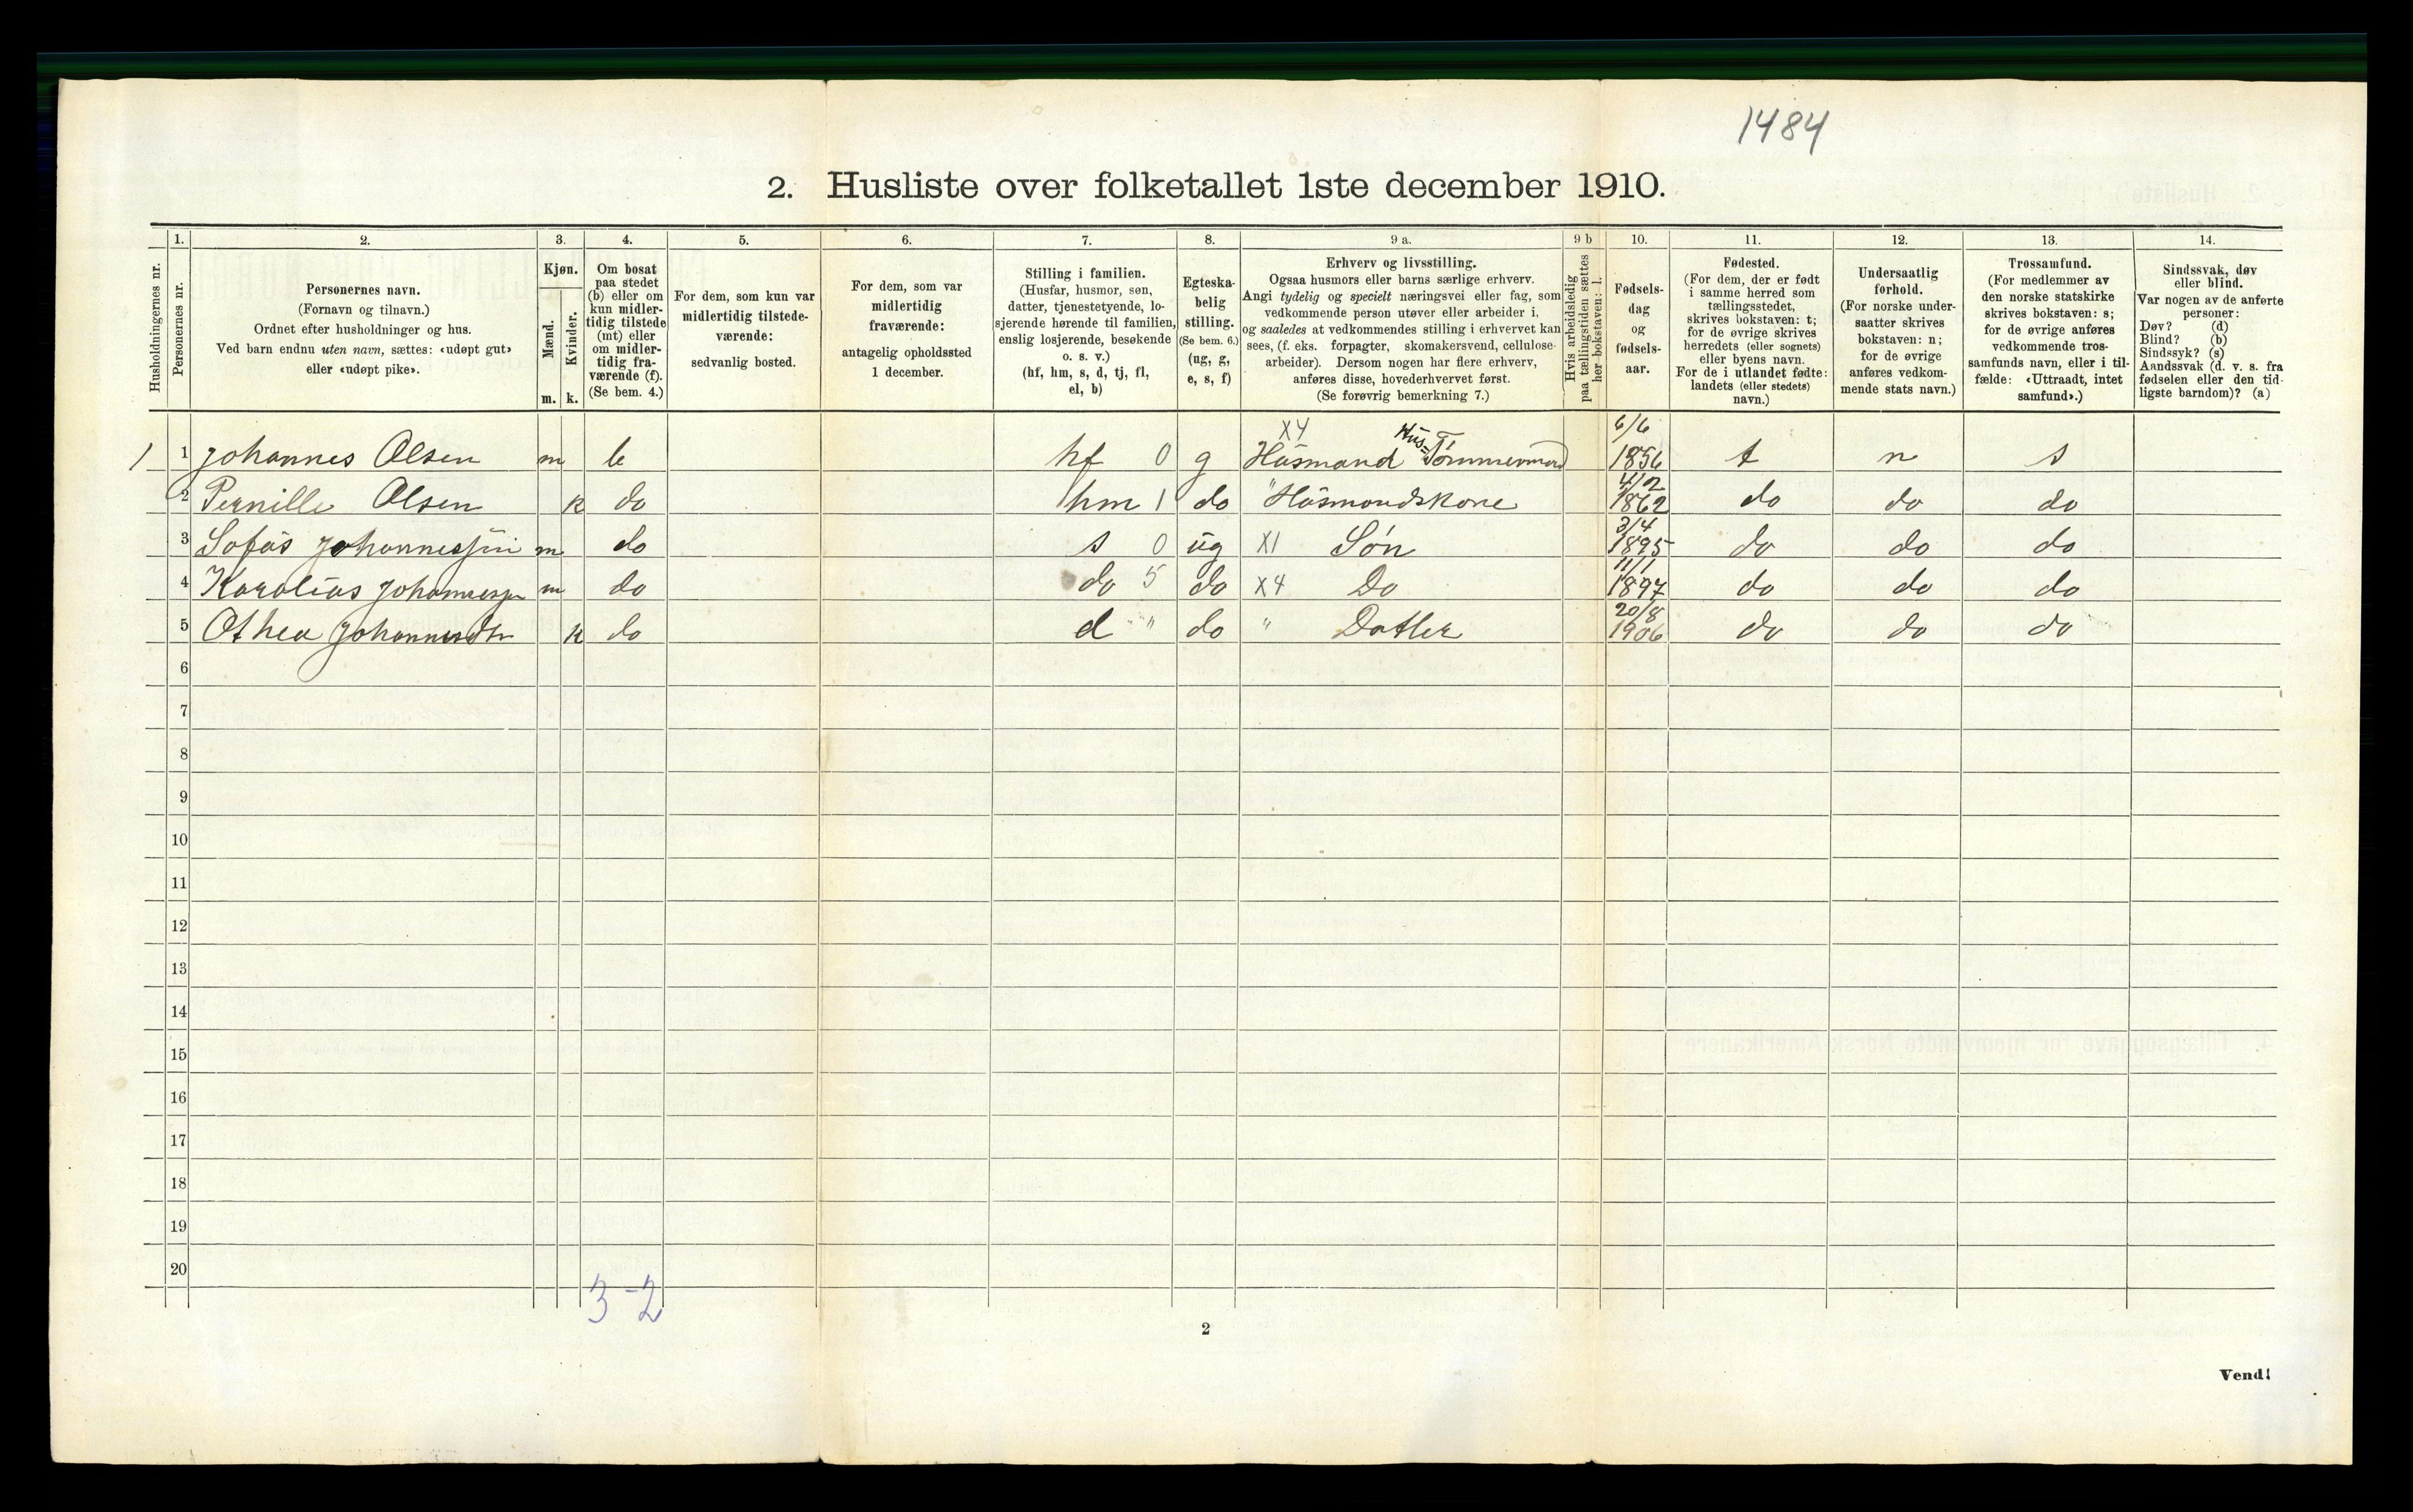 1484
2. Husliste over folketallet 1ste december 1910.
Husholdningernes nr.
1.
Personernes nr.
2.
Personernes navn.
(Fornavn og tilnavn.)
Ordnet efter husholdninger og hus.
Ved barn endnu uten navn, sættes: «udøpt gut»
eller «udøpt pike».
3.
Kjøn.
Mænd.
Kvinder.
m. k.
4.
Om bosat
paa stedet
(b) eller om
kun midler-
tidig tilstede
(mt) eller
om midler-
tidig fra-
værende (f).
(Se bem. 4.)
5.
For dem, som kun var
midlertidig tilstede-
værende:
sedvanlig bosted.
6.
For dem, som var
midlertidig
fraværende:
antagelig opholdssted
1 december.
7.
Stilling i familien.
(Husfar, husmor, søn,
datter, tjenestetyende, lo-
sjerende hørende til familien,
enslig losjerende, besøkende
o. s. v.)
(hf, hm, s, d, tj, fl,
el, b)
8.
Egteska-
belig
stilling.
(Se bem. 6.)
(ug, g,
e, s, f)
9 a.
Erhverv og livsstilling.
Ogsaa husmors eller barns særlige erhverv.
Angi tydelig og specielt næringsvei eller fag, som
vedkommende person utøver eller arbeider i,
og saaledes at vedkommendes stilling i erhvervet kan
sees, (f. eks. forpagter, skomakersvend, cellulose-
arbeider). Dersom nogen har flere erhverv,
anføres disse, hovederhvervet først.
(Se forøvrig bemerkning 7.)
9 b
Hvis arbeidsledig
paa tællingstiden sættes
her bokstaven: l.
10.
Fødsels-
dag
og
fødsels-
aar.
11.
Fødested.
(For dem, der er født
i samme herred som
tællingsstedet,
skrives bokstaven: t;
for de øvrige skrives
herredets (eller sognets)
eller byens navn.
For de i utlandet fødte:
landets (eller stedets)
navn.)
12.
Undersaatlig
forhold.
(For norske under-
saatter skrives
bokstaven: n;
for de øvrige
anføres vedkom-
mende stats navn.)
13.
Trossamfund.
(For medlemmer av
den norske statskirke
skrives bokstaven: s;
for de øvrige anføres
vedkommende tros-
samfunds navn, eller i til-
fælde: «Uttraadt, intet
samfund».)
14.
Sindssvak, døv
eller blind.
Var nogen av de anførte
personer:
Døv? (d)
Blind? (b)
Sindssyk? (s)
Aandssvak (d. v. s. fra
fødselen eller den tid-
ligste barndom)? (a)
1 1 Johannes Olsen m b hf 0 g X4 Husmand Hus-Tømmermand 6/6 1856 t n s
2 Pernille Olsen k do hm 1 do " Husmondskone 4/2 1862 do do do
3 Sofus Johannessøn m do s 0 ug X1 Søn 3/4 1895 do do do
4 Karolius m do do 5 do X4 Do 11/1 1897 do do do
5 Othea Johannesdtr k do d " do " Datter 20/8 1906 do do do
6
7
8
9
10
11
12
13
14
15
16
17
18
19
20
3-2
2
Vend!